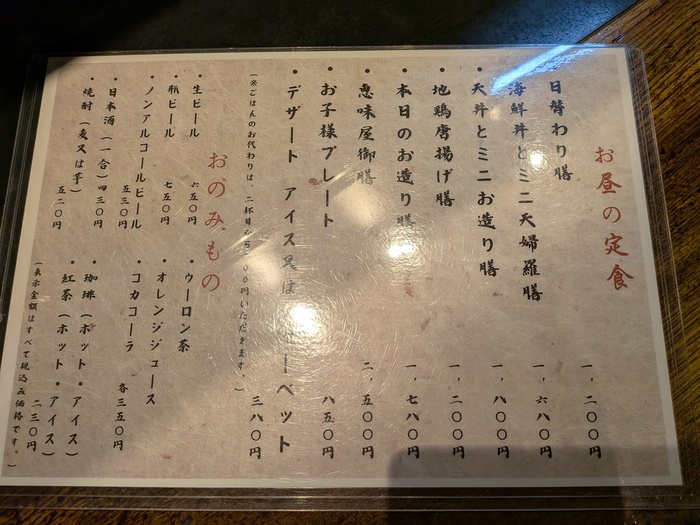 お昼の定食
・日替わり膳 一,二〇〇円
・海鮮丼とミニ天婦羅膳 一,六八〇円
・天丼とミニお造り膳 一,八〇〇円
・地鶏唐揚げ膳 一,二〇〇円
・本日のお造り膳 一,七八〇円
・恵味屋御膳 二,五〇〇円
・お子様プレート 八五〇円
・デザート アイス又はシャーベット 三八〇円
(※ごはんのお代わりは、二杯目から
〇〇円いただきます。)
おのみもの
・生ビール 六五〇円
・瓶ビール 七五〇円
・ノンアルコールビール 五三〇円
・日本酒(一合)四三〇円
・焼酎(麦又は芋) 五二〇円
・ウーロン茶
・オレンジジュース
・コカコーラ 各三五〇円
・珈琲(ホット・アイス)
・紅茶(ホット・アイス) 二三〇円
(表示金額はすべて税込み価格です。)